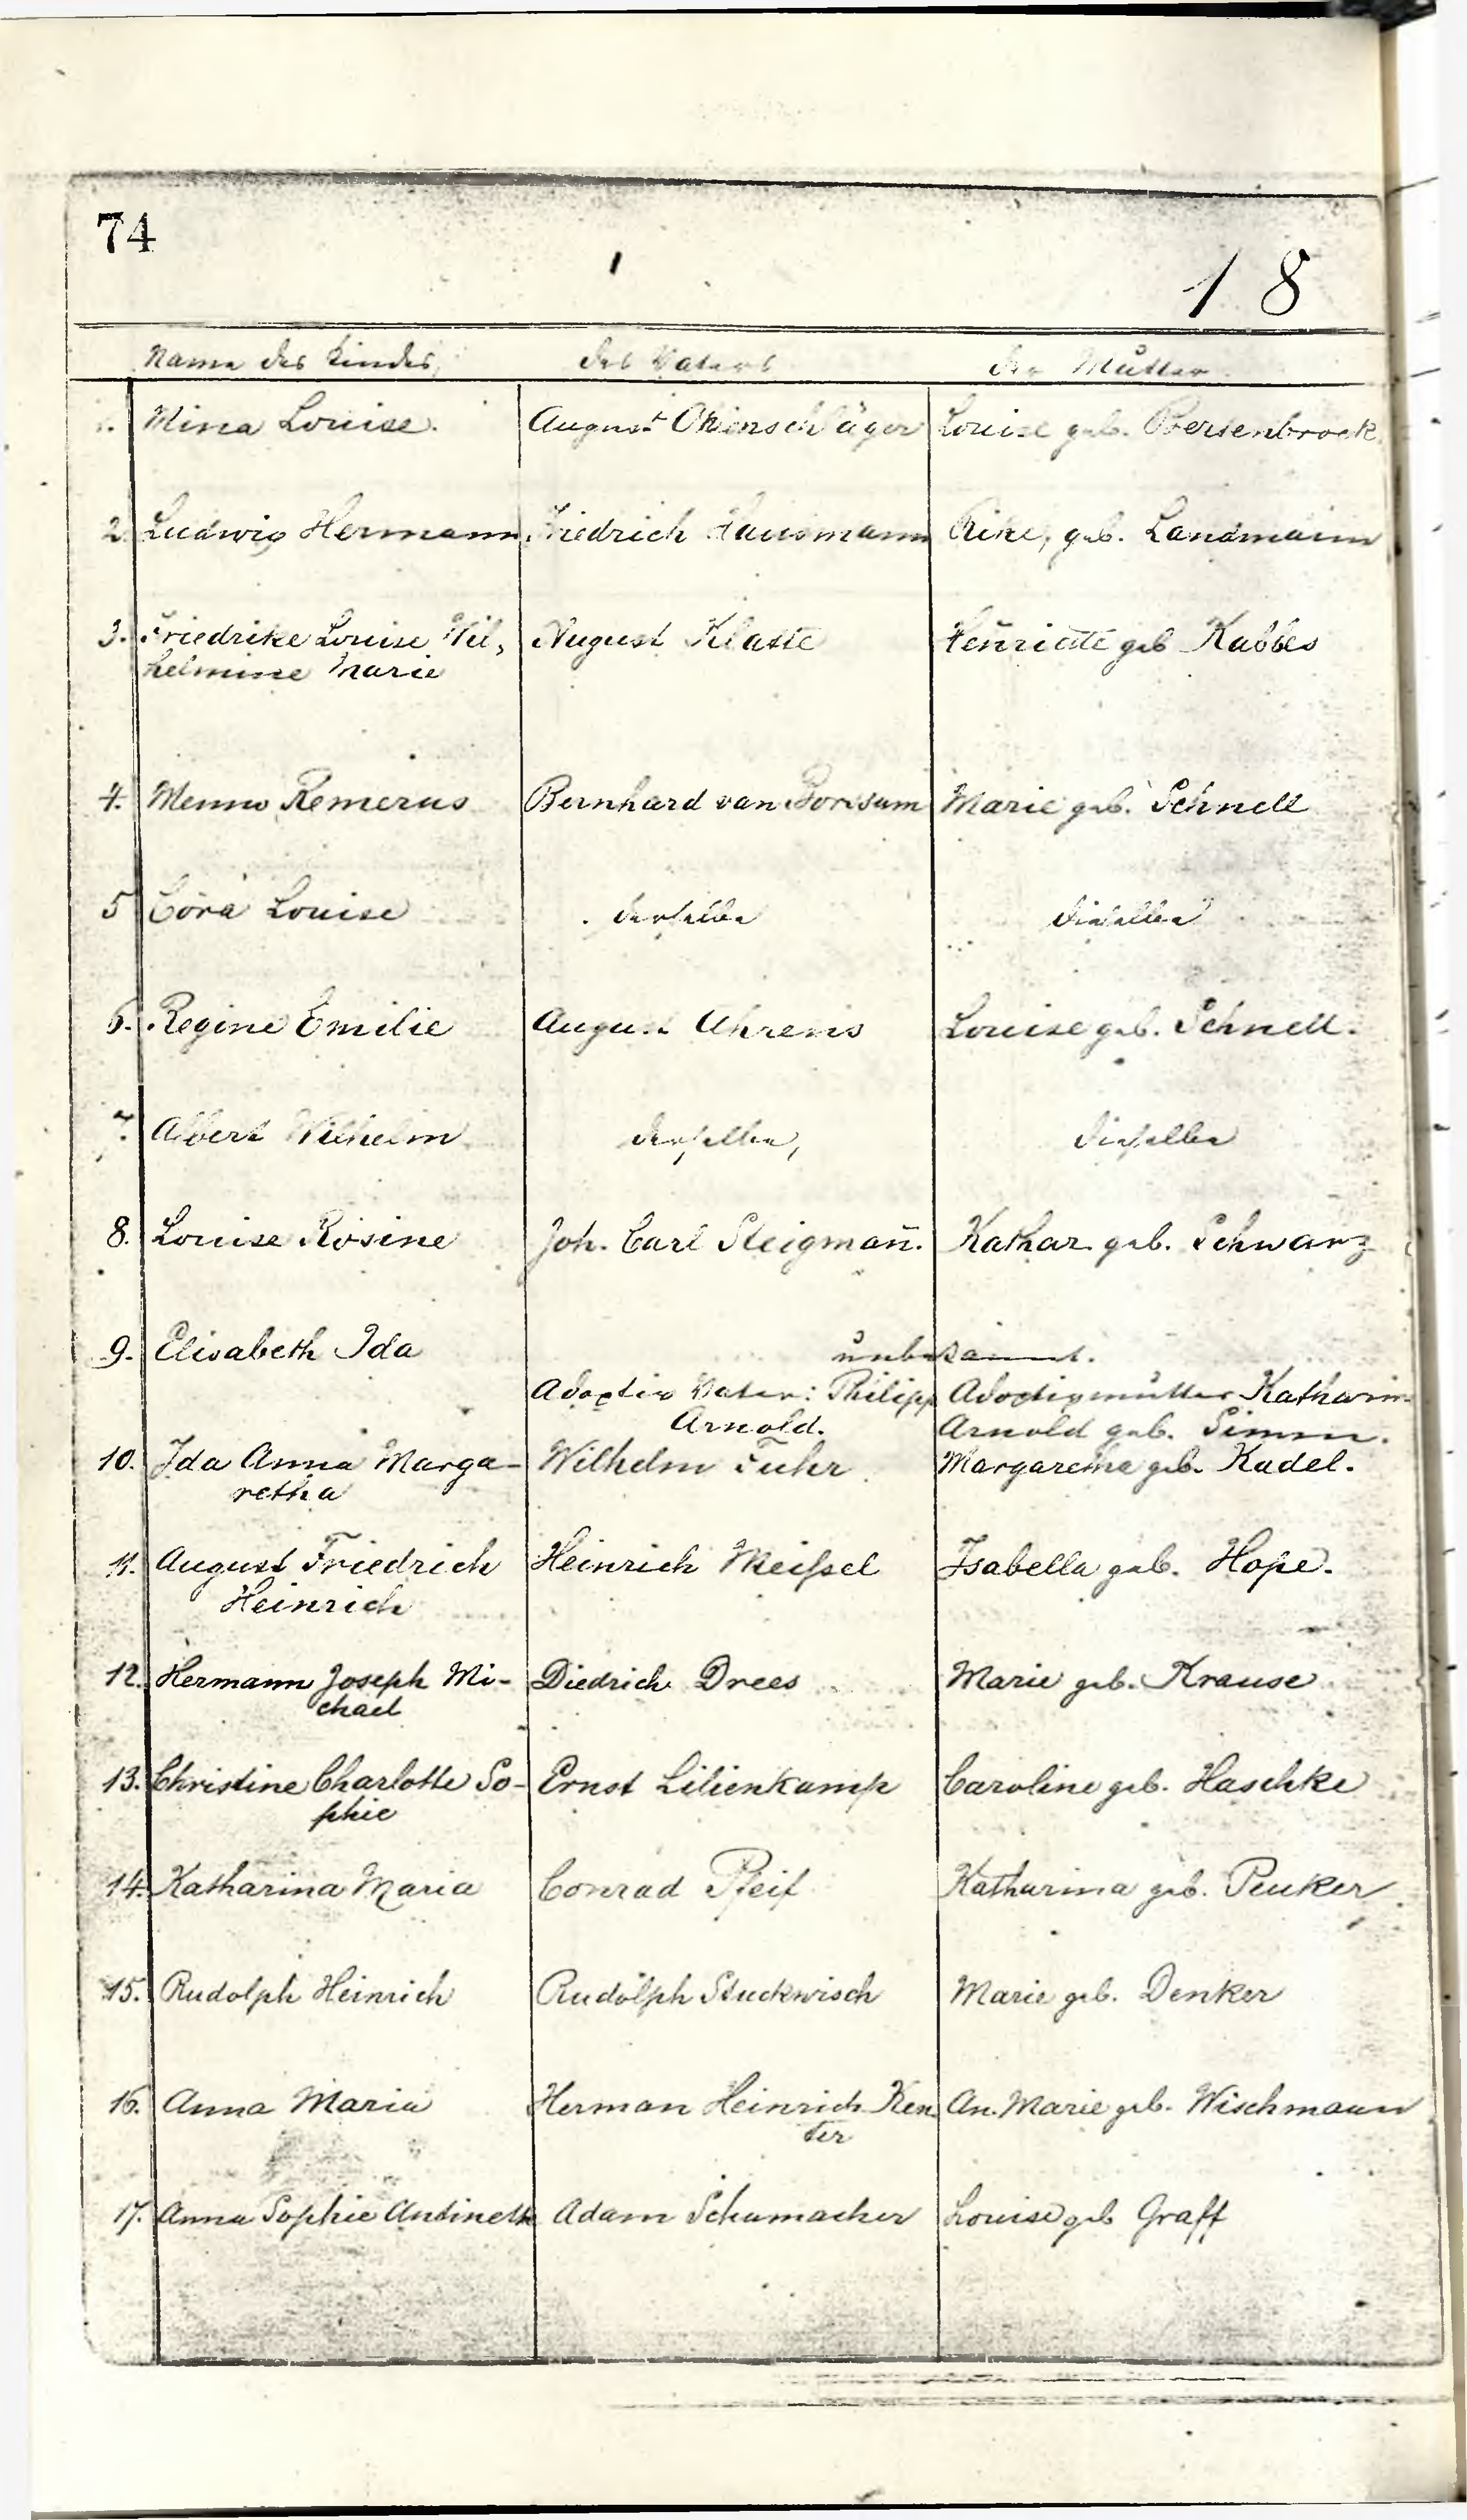 74
18
Name des Kindes, des Vaters der Mutter
1. Mina Louise. August Ohlnschläger Louise geb. Bersenbrock
2. Ludwig Hermann Friedrich Hausmann Rike, geb. Landmann
3. Friedrike Louise Wil, August Klatte Henriette geb Kabbes
helmine Marie
4. Menno Remerus Bernhard van Borssum Marie geb. Schnell
5 Cora Louise derselbe dieselbe
6. Regine Emilie August Ahrens Louise geb. Schnell.
7. Albert Wilhelm derselbe, dieselbe
8. Louise Rosine Joh. Carl Steigman̄. Kathar. geb. Schwarz
9. Elisabeth Ida unbekannt.
Adoptiv Vater: Philipp Adoptivmutter Katharin
Arnold. Arnold geb. Simm.
10. Ida Anna Marga- Wilhelm Fuhr Margaretha geb. Kadel.
retha
11. August Friedrich Heinrich Meißel Isabella geb. Hope.
Heinrich
12. Hermann Joseph Mi- Diedrich Drees Marie geb. Krause
chael
13. Christine Charlotte So- Ernst Lilienkamp Caroline geb. Haschke
phie
14. Katharina Maria Conrad Pfeif Katharina geb. Peuker
15. Rudolph Heinrich Rudolph Stuckwisch Marie geb. Denker
16. Anna Maria Herman Heinrich Ken An. Marie geb. Wischmann
ter
17. Anna Sophie Antineth Adam Schumacher Louise geb Graff